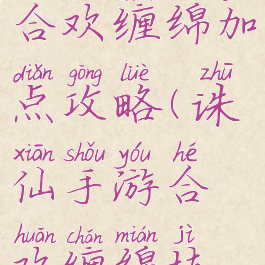 合欢缠绵加
diǎn gōng lüè zhū
点攻略(诛
xiān shǒu yóu hé
仙手游合
huān chán mián jì
欢缠绵技